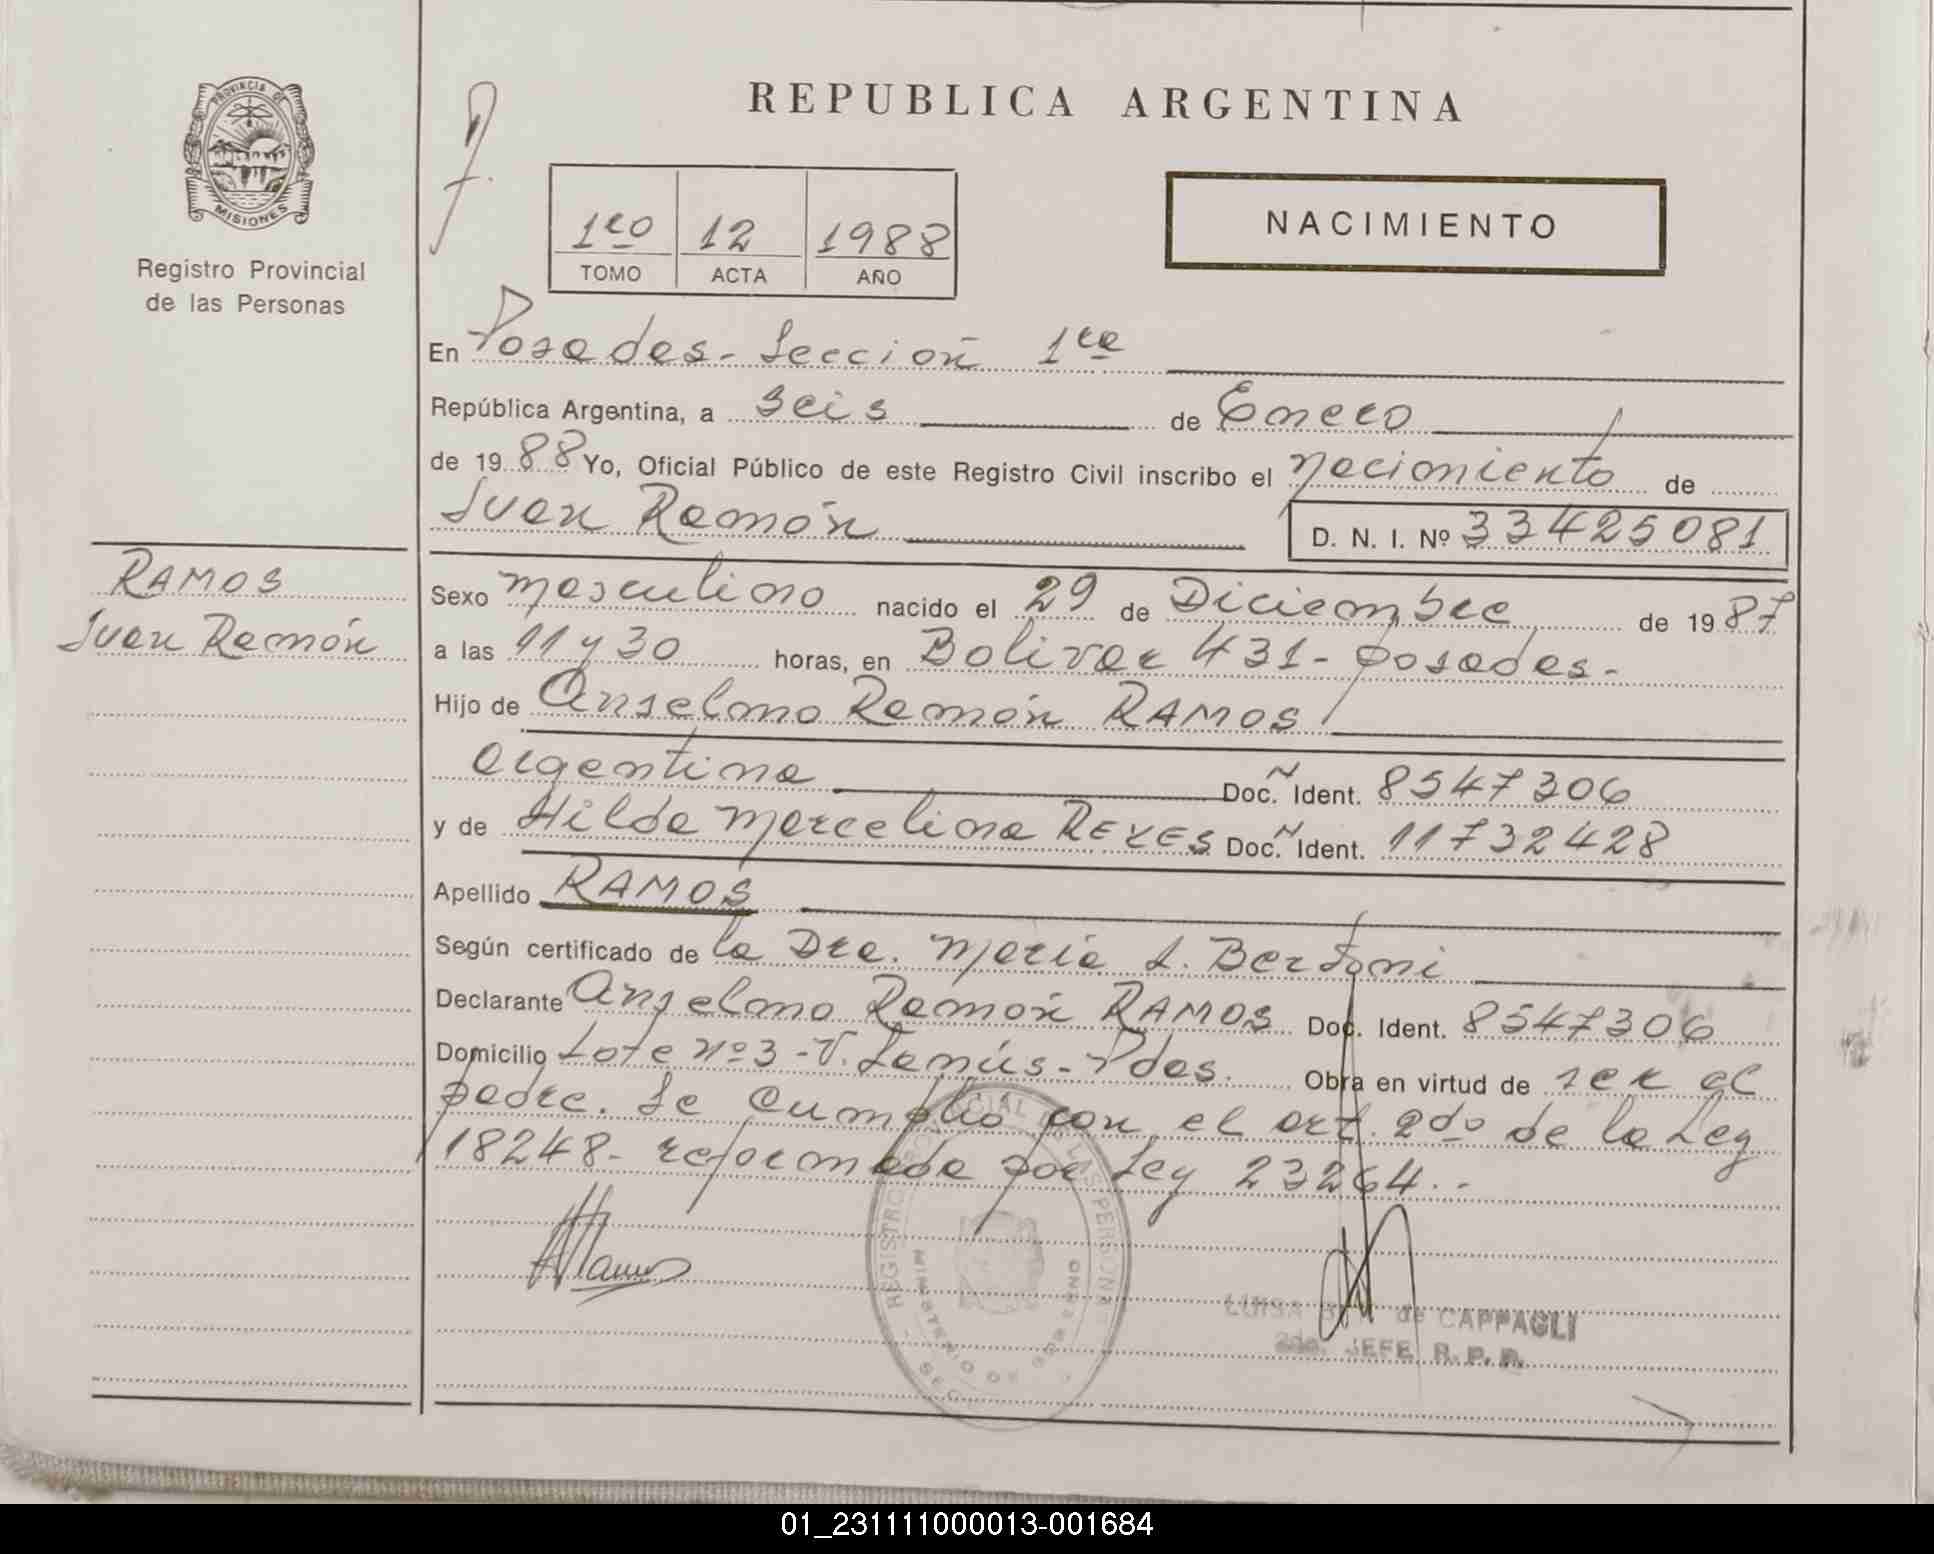 PROVINCIA DE
MISIONES
Registro Provincial
de las Personas
REPUBLICA ARGENTINA
1ro 12 1988
TOMO ACTA AÑO
NACIMIENTO
En Posadas - Sección 1ra
República Argentina, a seis de Enero
de 19 88 Yo, Oficial Público de este Registro Civil inscribo el nacimiento de
Juan Ramón D. N. I. Nº 33425081
RAMOS
Juan Ramón
Sexo masculino nacido el 29 de Diciembre de 19 87
a las 11 y 30 horas, en Bolivar 431 - posadas -
Hijo de Anselmo Ramón RAMOS
argentina Doc. Ident. 8547306
y de Hilda Marcelina REYES Doc. Ident. 11732428
Apellido RAMOS
Según certificado de la Dra. María L. Bertoni
Declarante Anselmo Ramón RAMOS Doc. Ident. 8547306
Domicilio Lote nº 3 - V. Lanús - Pdas. Obra en virtud de ser el
padre. Se cumplió con el art. 2do de la Ley
18248 - reformada por Ley 23264. -
REGISTRO PROVINCIAL DE LAS PERSONAS
MINISTERIO DE GOBIERNO
LUISA de CAPPAGLI
2do. JEFE R. P. P.
01_231111000013-001684